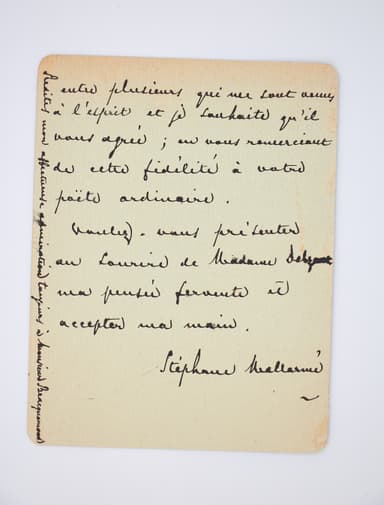 entre plusieurs qui me sont venus
à l'esprit et je souhaite qu'il
vous agrée ; en vous remerciant
de cette fidélité à votre
poëte ordinaire.
Voulez-vous présenter
au sourire de Madame
ma pensée fervente et
accepter ma main.
Stéphane Mallarmé
mon affectueuse admiration toujours à Monsieur Bracquemond